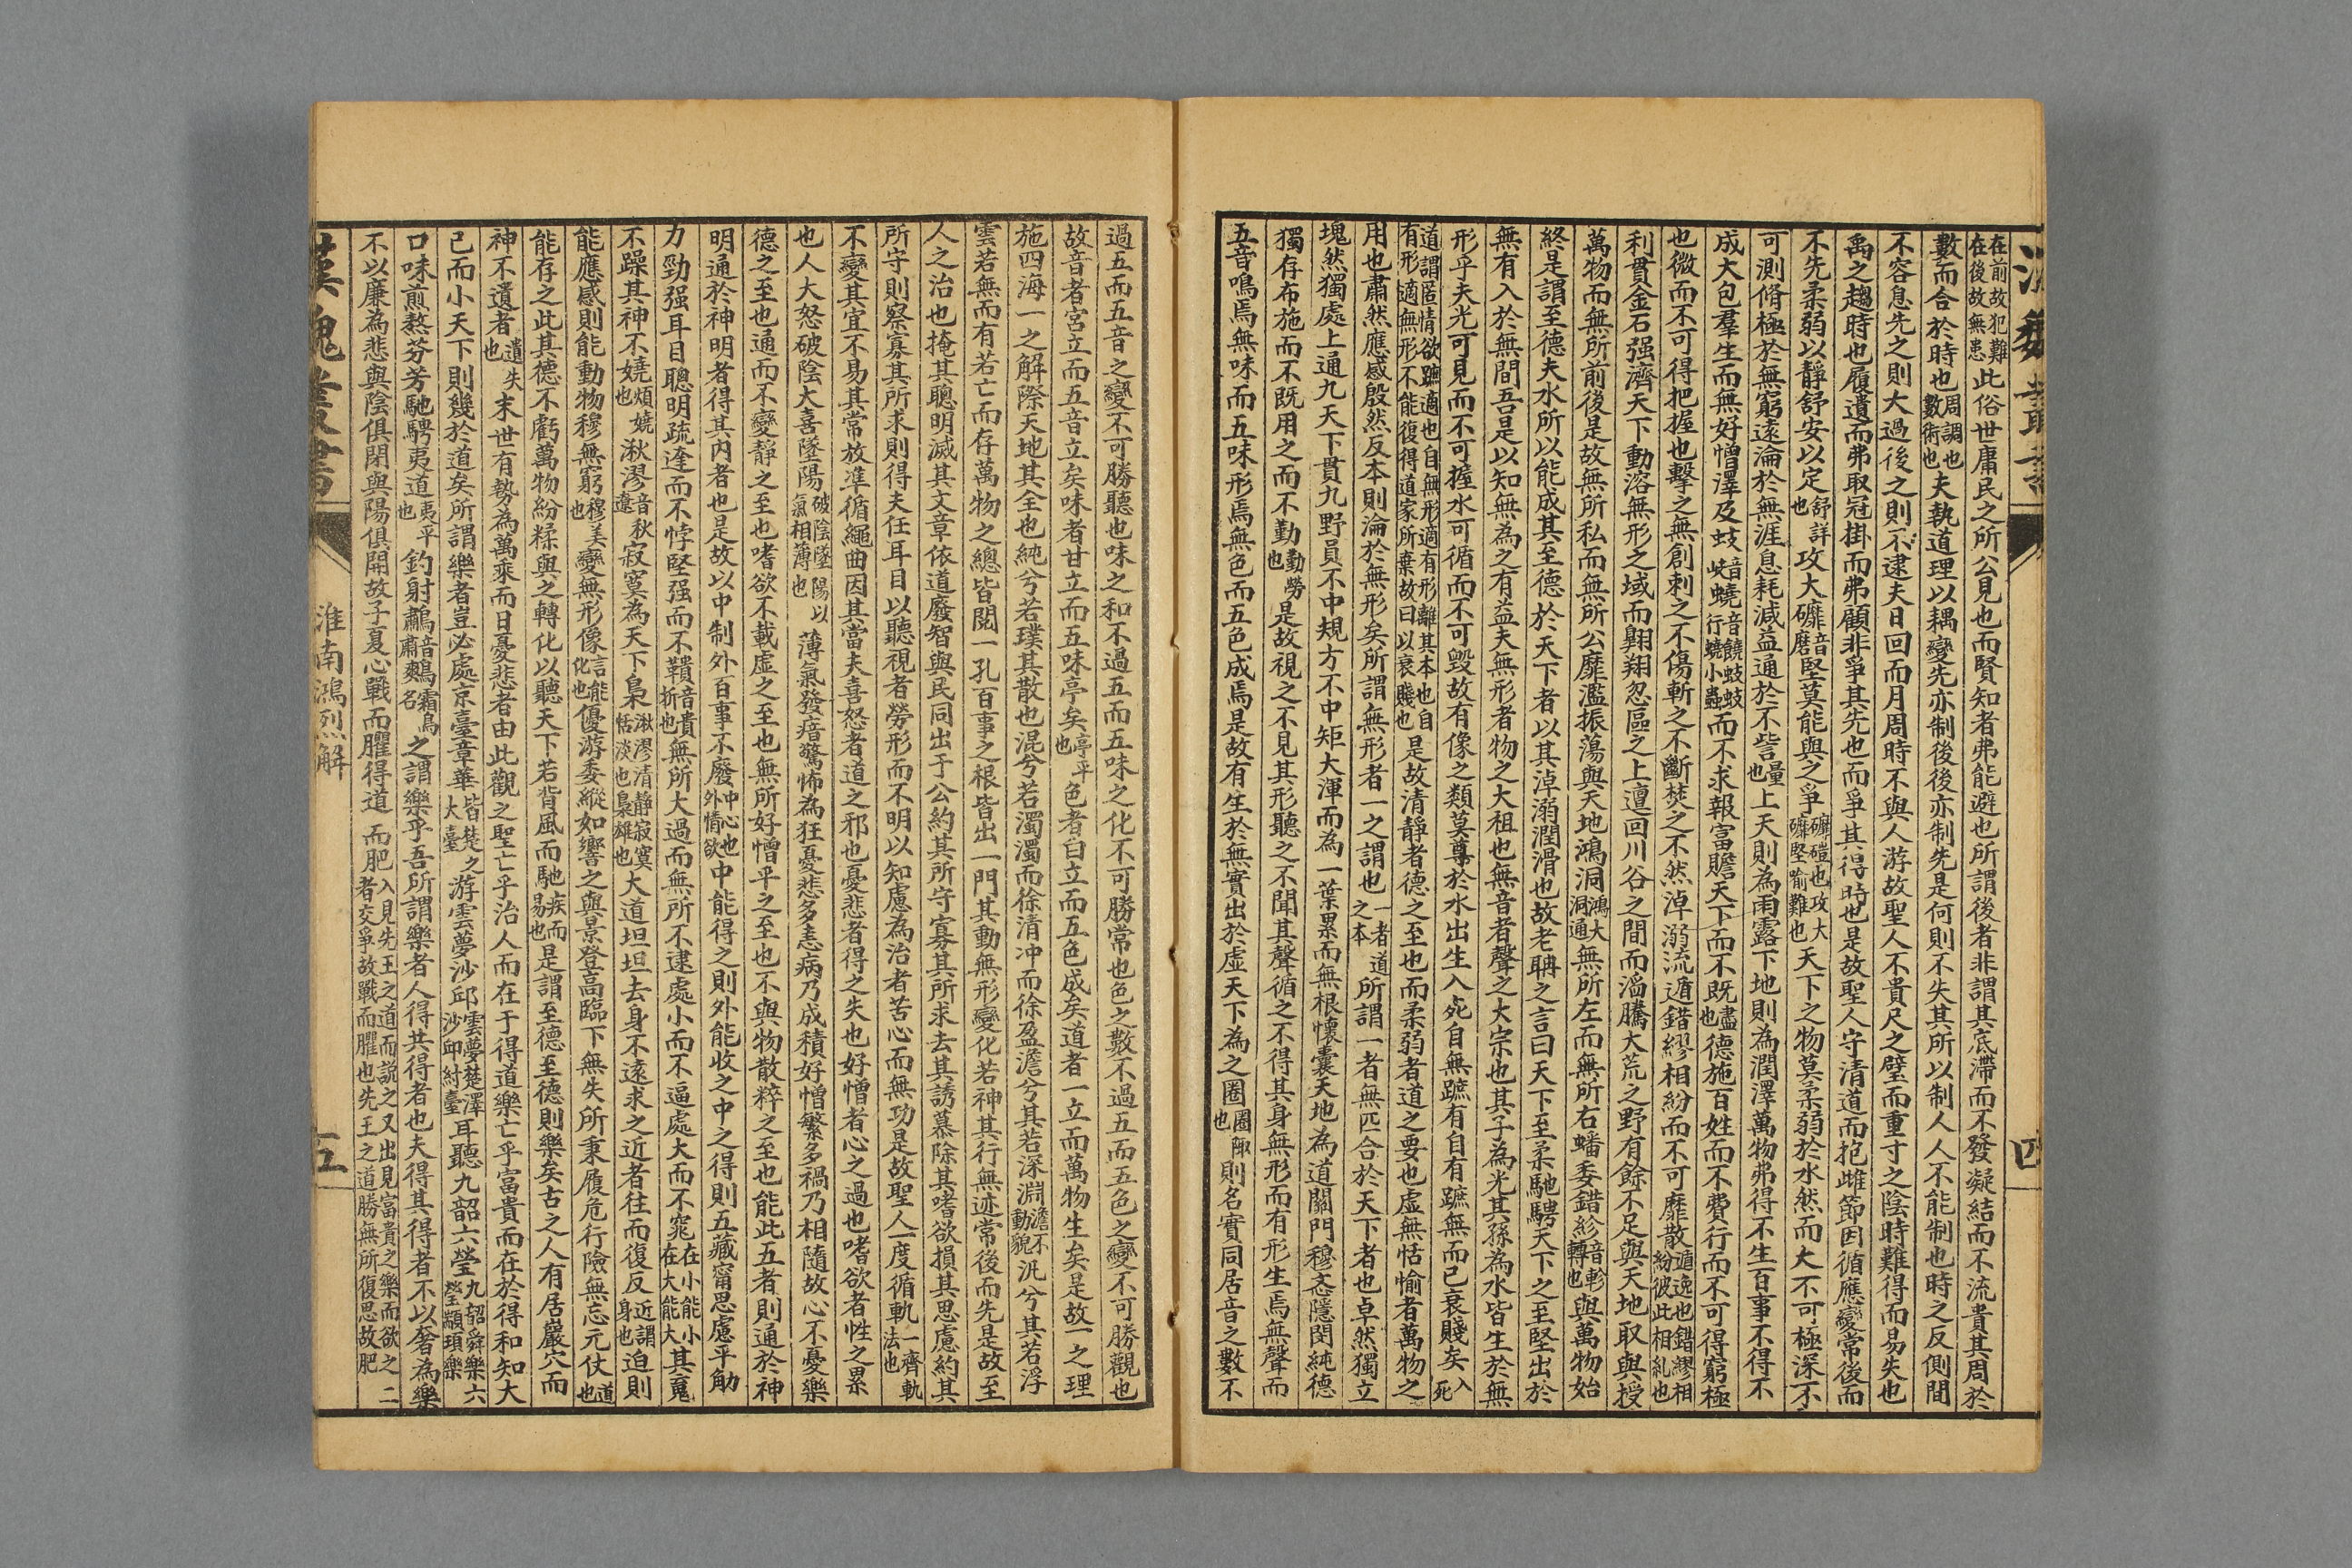 在前故犯難在後故無患此俗世庸民之所公見也而賢知者弗能避也所謂後者非謂其底滯而不發凝結而不流貴其周於
數而合於時也周調也數術也夫執道理以耦變先亦制後後亦制先是何則不失其所以制人人不能制也時之反側間
不容息先之則大過後之則不逮夫日回而月周時不與人游故聖人不貴尺之璧而重寸之陰時難得而易失也
禹之趨時也履遺而弗取冠掛而弗顧非爭其先也而爭其得時也是故聖人守清道而抱雌節因循應變常後而
不先柔弱以靜舒安以定舒詳也攻大䃺音磨堅莫能與之爭䃺磑也攻大䃺堅喻難也天下之物莫柔弱於水然而大不可極深不
可測脩極於無窮遠淪於無涯息耗減益通於不訾量也上天則為雨露下地則為潤澤萬物弗得不生百事不得不
成大包羣生而無好憎澤及蚑音岐蟯音饒蚑蚑行蟯小蟲而不求報富贍天下而不既盡也德施百姓而不費行而不可得窮極
也微而不可得把握也擊之無創刺之不傷斬之不斷焚之不然淖溺流遁錯繆相紛而不可靡散遁逸也錯繆相紛彼此相糺也
利貫金石强濟天下動溶無形之域而翺翔忽區之上邅回川谷之間而滔騰大荒之野有餘不足與天地取與授
萬物而無所前後是故無所私而無所公靡濫振蕩與天地鴻洞鴻大洞通無所左而無所右蟠委錯紾音軫轉也與萬物始
終是謂至德夫水所以能成其至德於天下者以其淖溺潤滑也故老聃之言曰天下至柔馳騁天下之至堅出於
無有入於無間吾是以知無為之有益夫無形者物之大祖也無音者聲之大宗也其子為光其孫為水皆生於無
形乎夫光可見而不可握水可循而不可毀故有像之類莫尊於水出生入死自無蹠有自有蹠無而已衰賤矣入死
道謂匿情欲蹠適也自無形適有形離其本也自有形適無形不能復得道家所棄故曰以衰賤也是故清靜者德之至也而柔弱者道之要也虛無恬愉者萬物之
用也肅然應感殷然反本則淪於無形矣所謂無形者一之謂也一者道之本所謂一者無匹合於天下者也卓然獨立
塊然獨處上通九天下貫九野員不中規方不中矩大渾而為一葉累而無根懷囊天地為道關門穆忞隱閔純德
獨存布施而不既用之而不勤勤勞也是故視之不見其形聽之不聞其聲循之不得其身無形而有形生焉無聲而
五音鳴焉無味而五味形焉無色而五色成焉是故有生於無實出於虛天下為之圈圈陬也則名實同居音之數不
四
過五而五音之變不可勝聽也味之和不過五而五味之化不可勝常也色之數不過五而五色之變不可勝觀也
故音者宮立而五音立矣味者甘立而五味亭矣亭平也色者白立而五色成矣道者一立而萬物生矣是故一之理
施四海一之解際天地其全也純兮若璞其散也混兮若濁濁而徐清冲而徐盈澹兮其若深淵澹不動貌汎兮其若浮
雲若無而有若亡而存萬物之總皆閱一孔百事之根皆出一門其動無形變化若神其行無迹常後而先是故至
人之治也掩其聰明滅其文章依道廢智與民同出于公約其所守寡其所求去其誘慕除其嗜欲損其思慮約其
所守則察寡其所求則得夫任耳目以聽視者勞形而不明以知慮為治者苦心而無功是故聖人一度循軌一齊軌法也
不變其宜不易其常放準循繩曲因其當夫喜怒者道之邪也憂悲者得之失也好憎者心之過也嗜欲者性之累
也人大怒破陰大喜墜陽破陰墜陽以氣相薄也薄氣發瘖驚怖為狂憂悲多恚病乃成積好憎繁多禍乃相隨故心不憂樂
德之至也通而不變靜之至也嗜欲不載虛之至也無所好憎平之至也不與物散粹之至也能此五者則通於神
明通於神明者得其內者也是故以中制外百事不廢中心也外情欲中能得之則外能收之中之得則五藏甯思慮平觔
力勁强耳目聰明疏達而不悖堅强而不鞼音貴折也無所大過而無所不逮處小而不逼處大而不窕在小能小在大能大其䰟
不躁其神不嬈煩嬈也湫漻音秋遼寂寞為天下梟湫漻清靜寂寞恬淡也梟雄也大道坦坦去身不遠求之近者往而復反近謂身也迫則
能應感則能動物穆無窮穆美也變無形像言能化也優游委縱如響之與景登高臨下無失所秉履危行險無忘元仗道也
能存之此其德不虧萬物紛糅與之轉化以聽天下若背風而馳疾而易也是謂至德至德則樂矣古之人有居巖穴而
神不遺者遺失也末世有勢為萬乘而日憂悲者由此觀之聖亡乎治人而在于得道樂亡乎富貴而在於得和知大
已而小天下則幾於道矣所謂樂者豈必處京臺章華皆楚之大臺游雲夢沙邱雲夢楚澤沙邱紂臺耳聽九韶六瑩九韶舜樂六瑩顓頊樂
口味煎熬芬芳馳騁夷道夷平也釣射鷫音肅鷞霜鳥名之謂樂乎吾所謂樂者人得其得者也夫得其得者不以奢為樂
不以廉為悲與陰俱閉與陽俱開故子夏心戰而臞得道而肥入見先王之道而說之又出見富貴之樂而欲之二者交爭故戰而臞也先王之道勝無所復思故肥
漢魏叢書
淮南鴻烈解
五